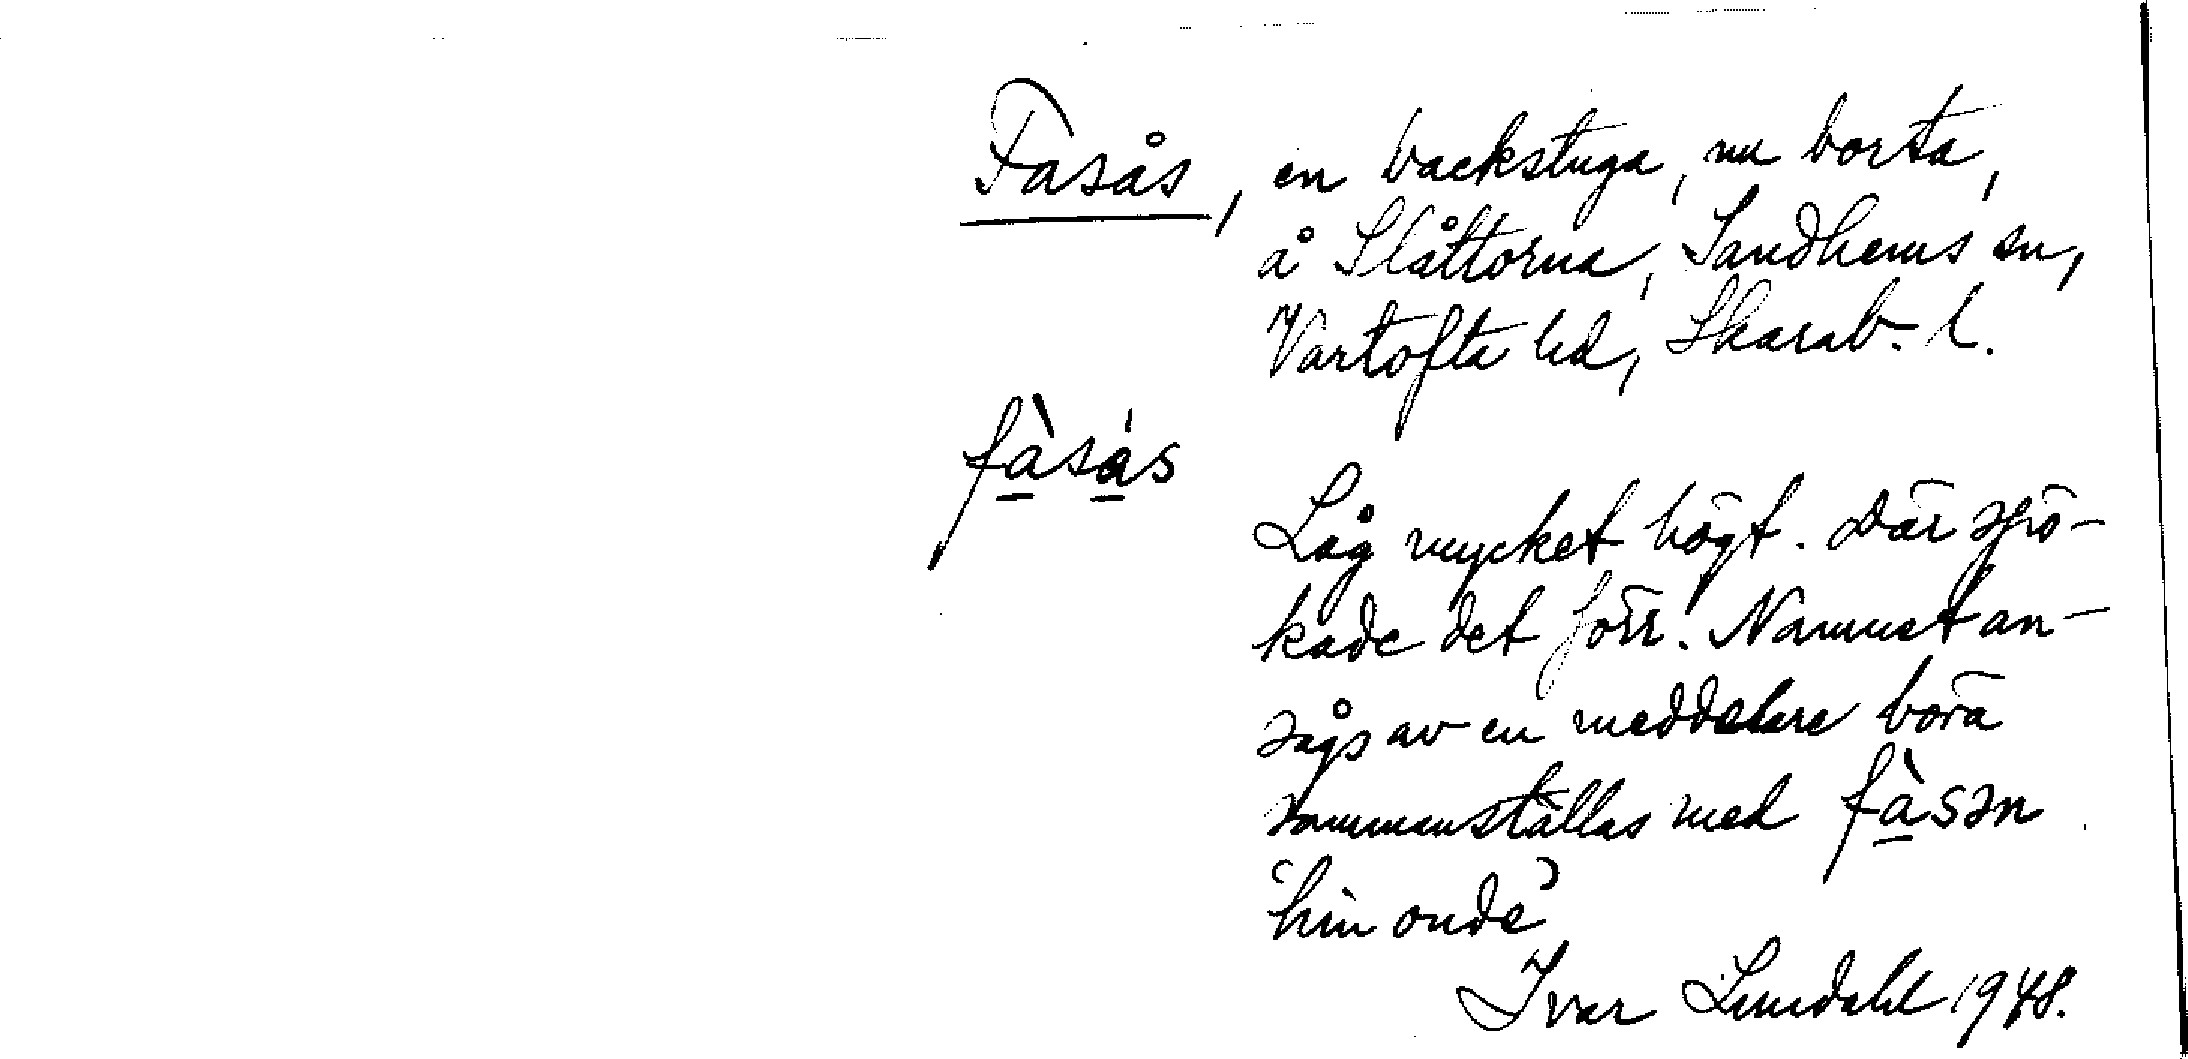 Fasås, en backstuga, nu borta,
å Slåttorna, Sandhems sn,
Vartofta hd, Skarab. l.
fàsás
Låg mycket högt. Där spö-
kade det förr. Namnet an-
sågs av en meddelare böra
sammanställas med fàsən
'hin onde'
Ivar Lundahl 1948.